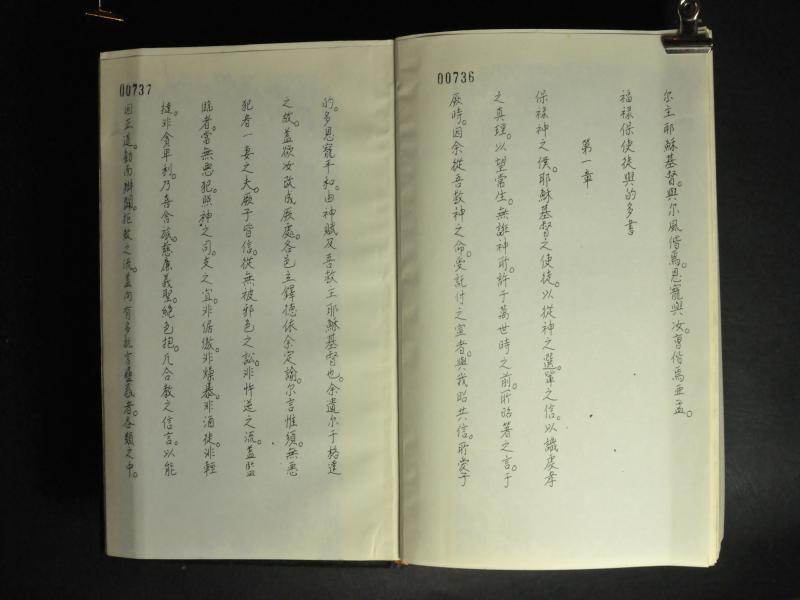 00736
尔主耶穌基督。與尔風偕焉。恩寵與汝曹偕焉亜孟。
福祿保使徒與的多書
第一章
保祿神之僕。耶穌基督之使徒。以從神之選輩之信。以識虔孝
之真理。以望常生。無誰神所許于萬世時之前。所昭著之言于
厥時。因余從吾救神之命。受託付之宣者。與我昭共信。所愛子
00737
的。多恩寵平和。由神賦及吾救主耶穌基督也。余遺尔于格達
之故。蓋欲汝改成厥處。各邑立鐸德依余定諭。尔言惟須無惡
犯者一妻之夫。厥子皆信。從無被邪色之訟。非忤逆之流。蓋監
臨者。當無惡犯。照神之司。支之宜。非倨傲。非燥暴。非酒徒。非輕
撻。非貪卑利。乃喜舍旅。慈廉義聖。絕色抱。凡合教之信言。以能
因正道。勸而辯闢拒敖之流。蓋向有多
者。各類之中。